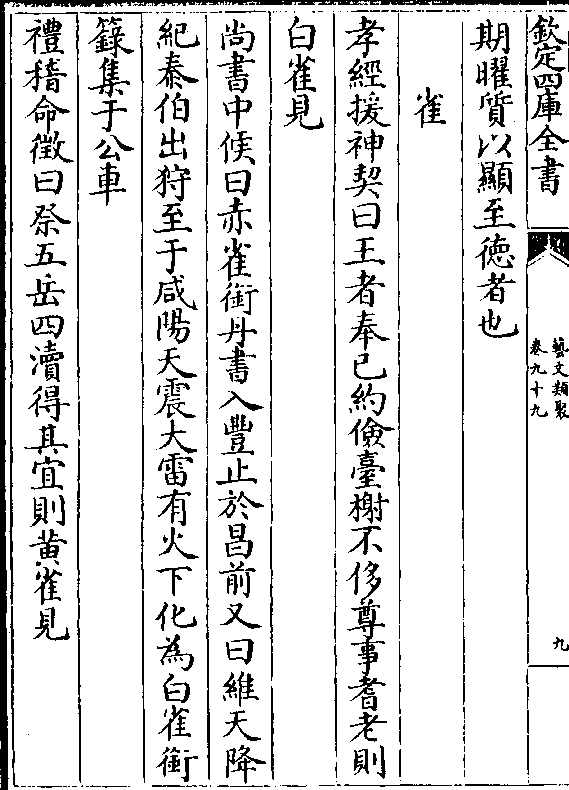 欽定四庫全書
藝文類聚
卷九十九
九
期曜質以顯至徳者也
雀
孝經援神契曰王者奉已約儉臺榭不侈尊事耆老則
白雀見
尚書中候曰赤雀銜丹書入豐止於昌前又曰維天降
紀秦伯出狩至于咸陽天震大雷有火下化為白雀銜
籙集于公車
禮稽命徵曰祭五岳四瀆得其宜則黄雀見